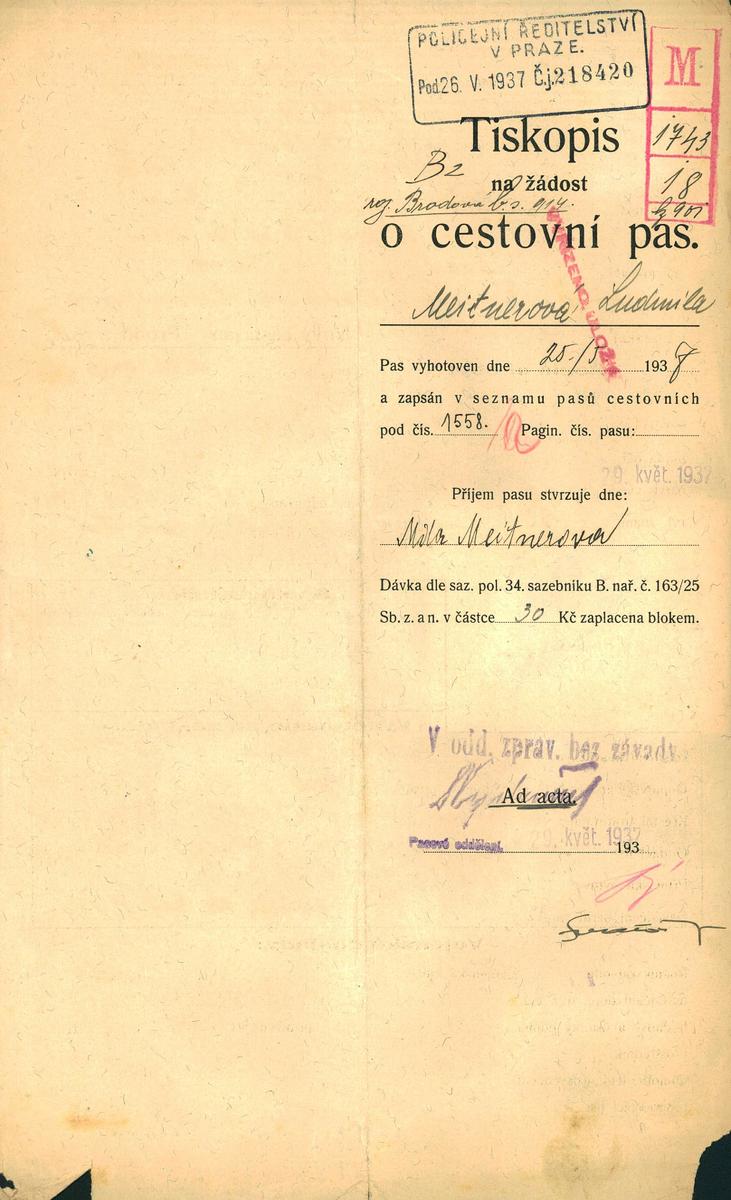 POLICEJNÍ ŘEDITELSTVÍ
V PRAZE.
Pod. 26. V. 1937 Č.j. 218420
M
1743
18
Tiskopis
B2
na žádost
roz. Brodová b. s. 914.
o cestovní pas.
VYŘÍZENO: ULOŽIT
Meitnerová Ludmila
Pas vyhotoven dne 25./5 1937
a zapsán v seznamu pasů cestovních
pod čís. 1558. Pagin. čís. pasu:
29. květ. 1937
Příjem pasu stvrzuje dne:
Mila Meitnerová
Dávka dle saz. pol. 34. sazebníku B. nař. č. 163/25
Sb. z. a n. v částce 30 Kč zaplacena blokem.
V odd. zprav. bez závady.
Ad acta.
Pasové oddělení. 29. květ. 1937
193